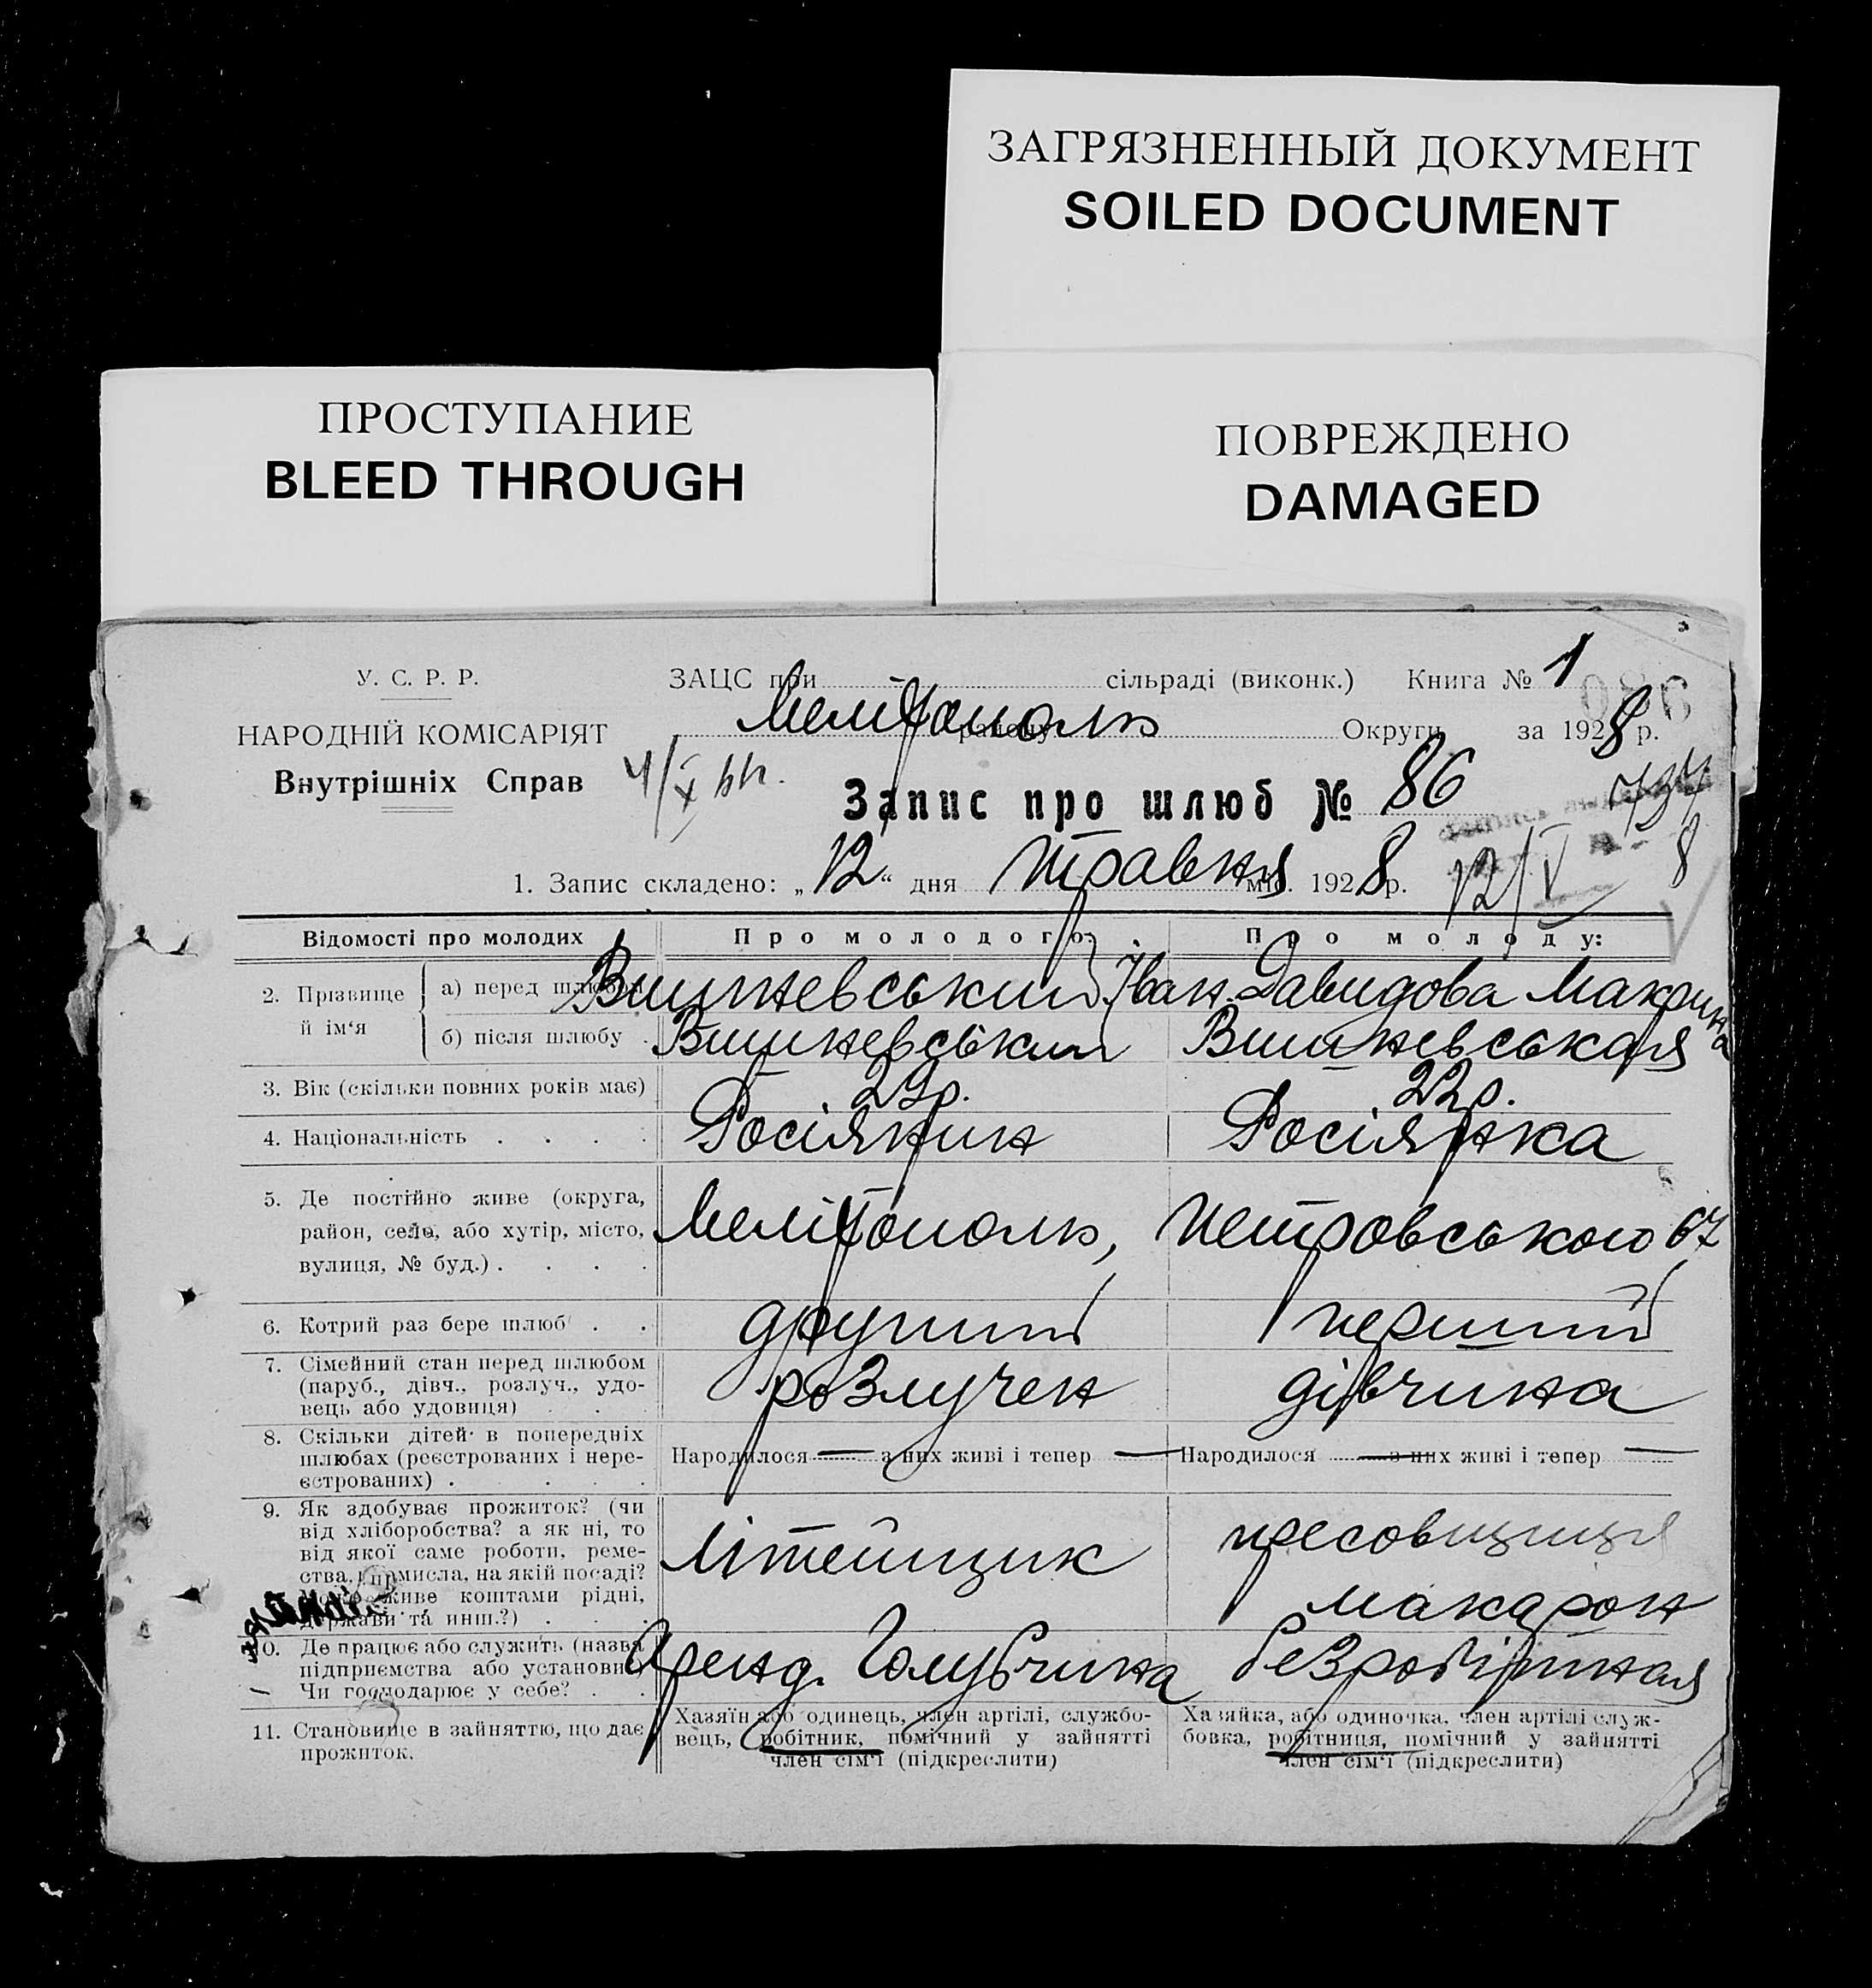 ЗАГРЯЗНЕННЫЙ ДОКУМЕНТ
SOILED DOCUMENT
ПРОСТУПАНИЕ
BLEED THROUGH
ПОВРЕЖДЕНО
DAMAGED
У. С. Р. Р.
НАРОДНІЙ КОМІСАРІЯТ
Внутрішніх Справ
ЗАЦС при сільраді (виконк.) Книга № 1
086
Мелітополь району Округи за 1928 р.
4/X
Запис про шлюб № 86
737
1. Запис складено: „12“ дня Травня міс. 1928 р.
12/V 8
Відомості про молодих Про молодого: Про молоду:
2. Прізвище й ім‘я
а) перед шлюбом Вишневський Іван Давидова Макрина
б) після шлюбу Вишневський Вишневськая
3. Вік (скільки повних років має) 22р. 22р.
4. Національність Росіянин Росіянка
5. Де постійно живе (округа,
район, село, або хутір, місто,
вулиця, № буд.) Мелітополь, Петровського 67
6. Котрий раз бере шлюб другий перший
7. Сімейний стан перед шлюбом
(паруб., дівч., розлуч., удо-
вець або удовиця) розлучен дівчина
8. Скільки дітей в попередніх
шлюбах (реєстрованих і нере-
єстрованих)
Народилося — з них живі і тепер — Народилося — з них живі і тепер —
9. Як здобуває прожиток? (чи
від хліборобства? а як ні, то
від якої саме роботи, реме-
ства, промисла, на якій посаді?
живе коштами рідні,
держави та инш.?)
Літейщик пресовщиця
макарон
10. Де працює або служить (назва
підприємства або установи
Чи господарює у себе?
Аренд. Голубчина безробітная
11. Становище в зайняттю, що дає
прожиток.
Хазяїн або одинець, член артілі, службо-
вець, робітник, помічний у зайнятті
член сім‘ї (підкреслити)
Хазяйка, або одиночка, член артілі служ-
бовка, робітниця, помічний у зайнятті
член сім‘ї (підкреслити)